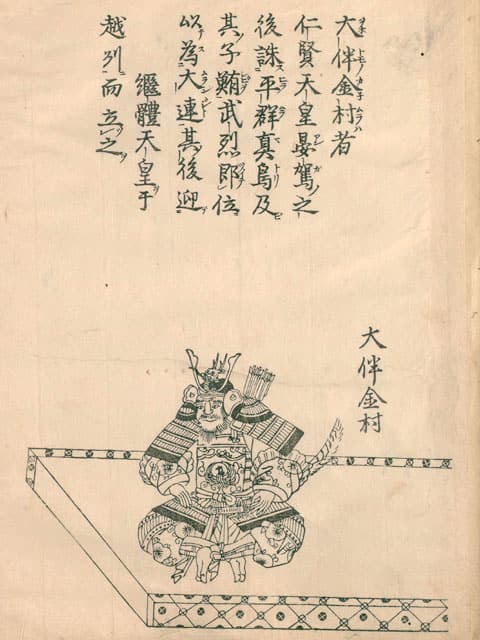 大伴金村者
仁賢天皇晏駕之
後誅平群真鳥及
其子鮪武烈即位
以為大連其後迎
継體天皇于
越列而立之
大伴金村